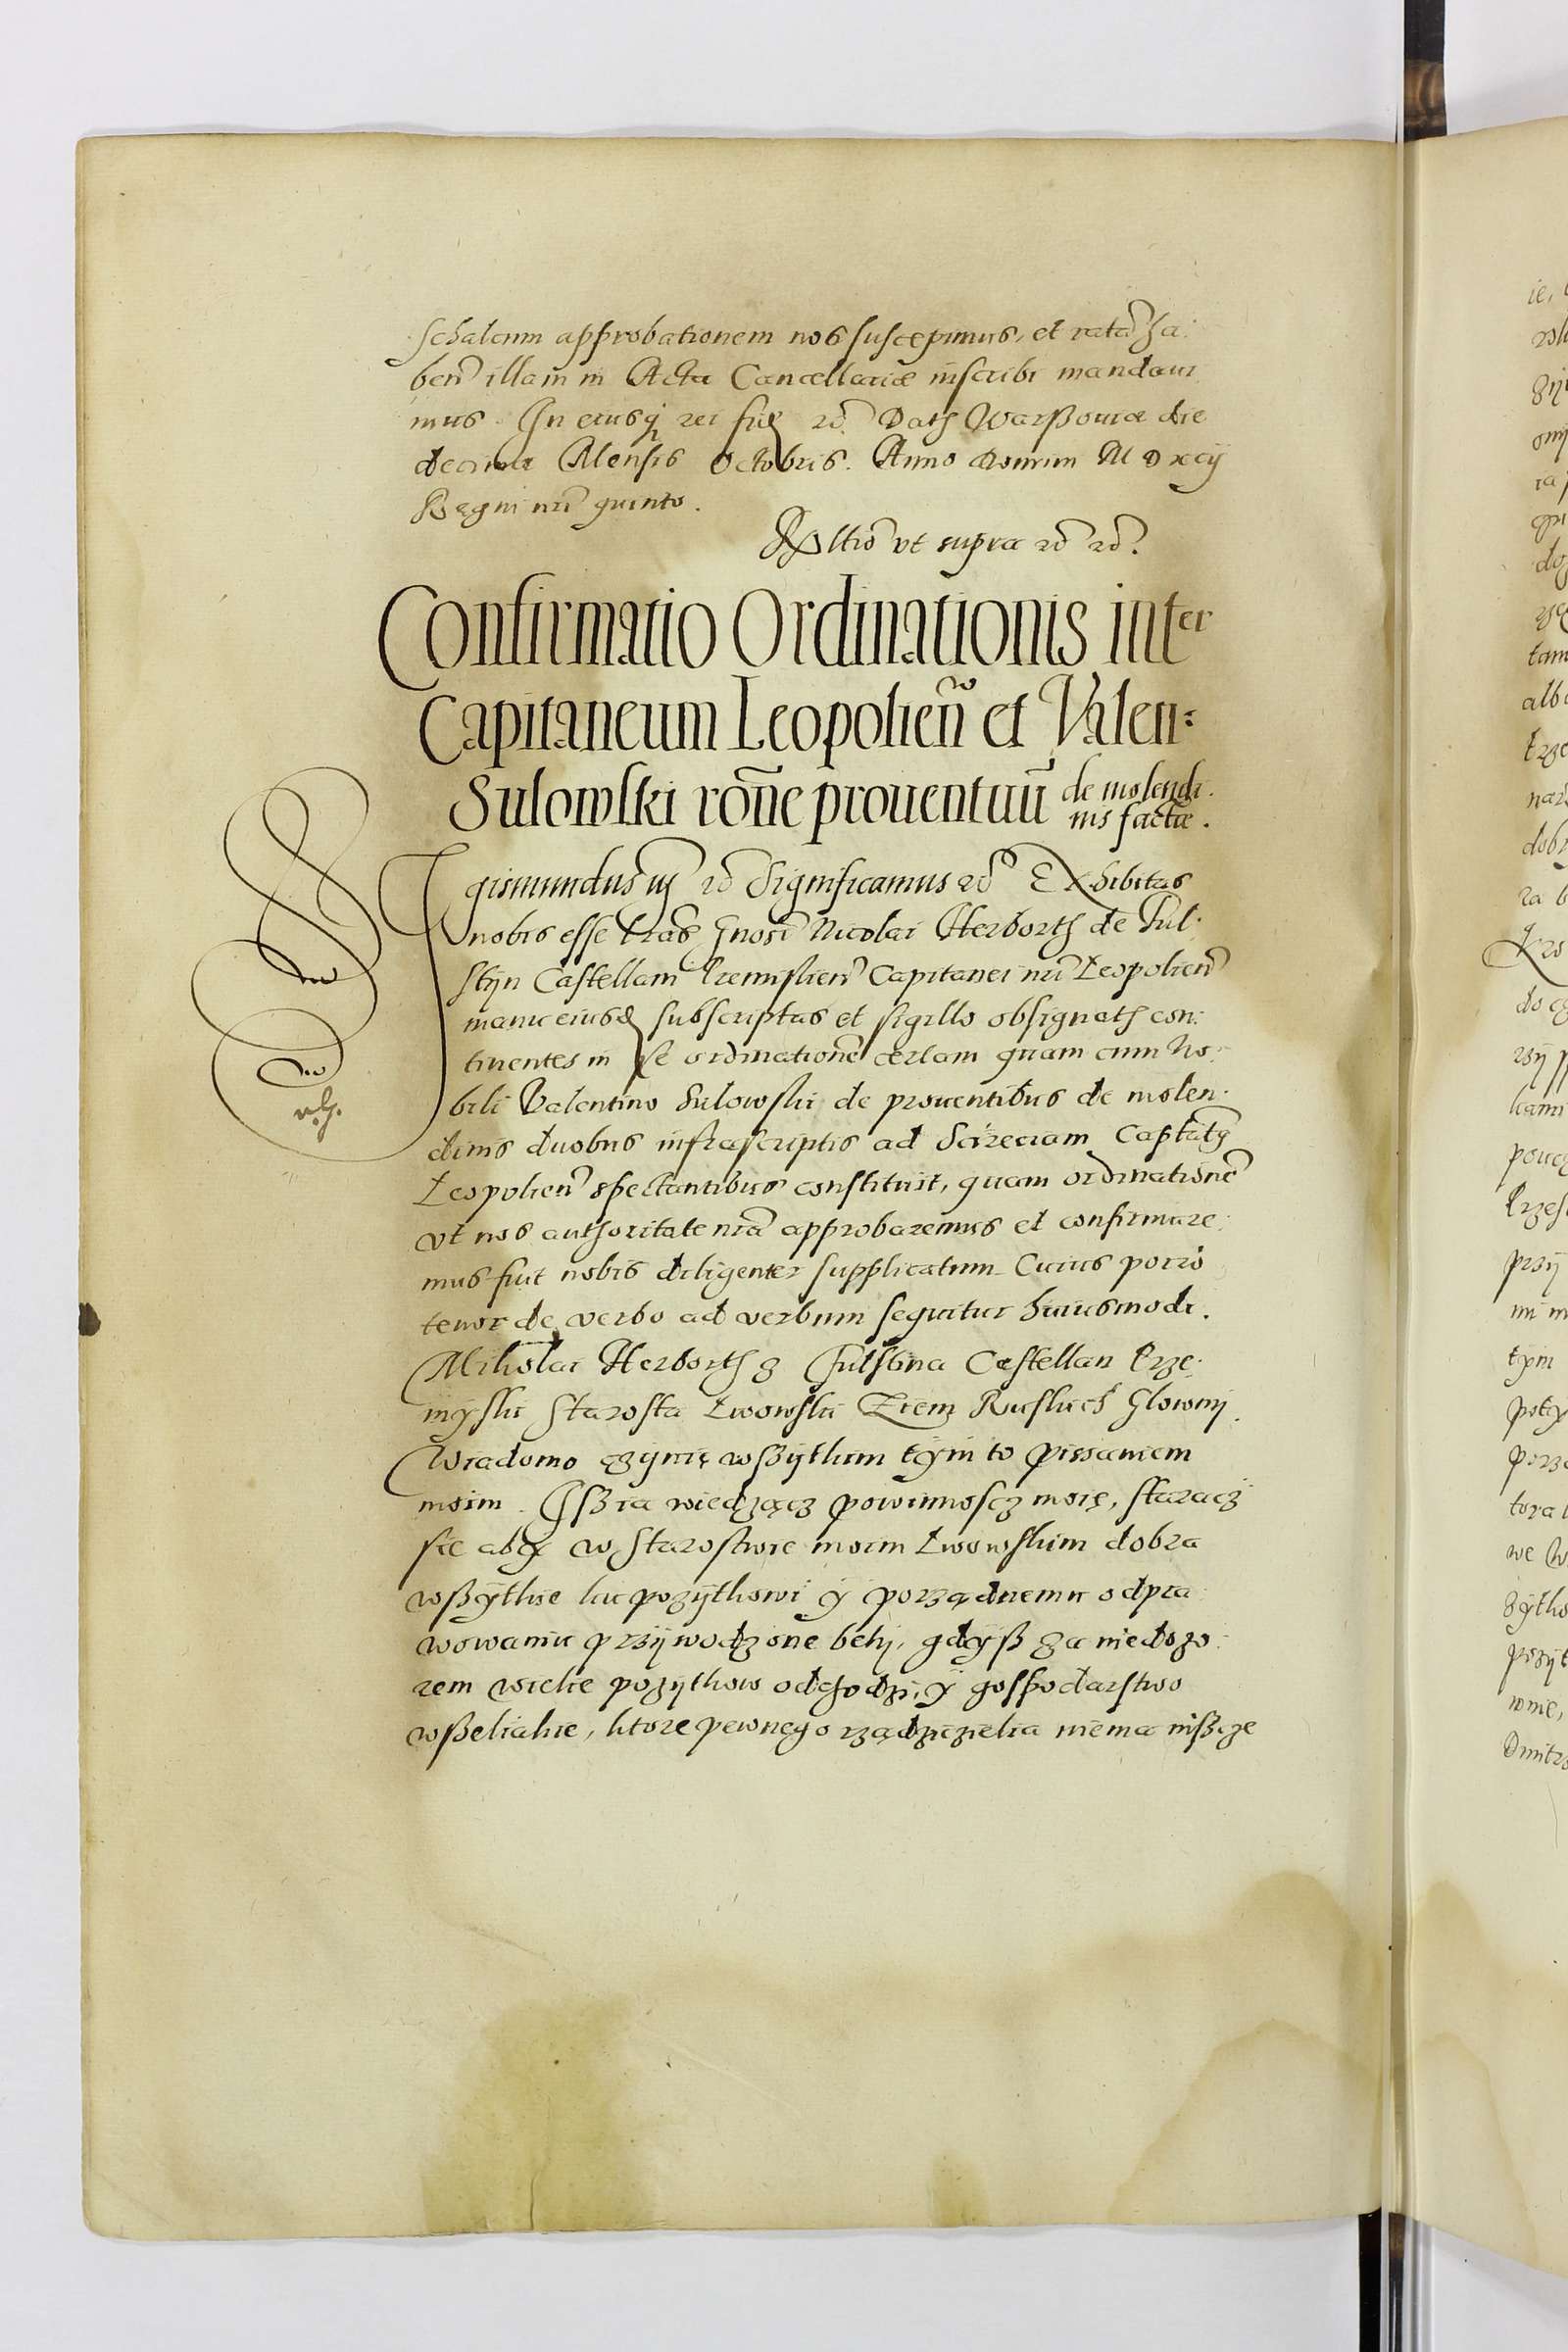 schalcum approbationem nos suscepimus, et ratã ha:
beñ illam in Acta Cancellariæ inscribi mandavi
mus. In eiusq rei fidẽ etc. Dath Warßoviæ die
decima Mensis Octobris. Anno Domini M D xcij
Regni nri quinto.
Rltio vt supra etc etc.
Confirmatio Ordinationis inter
Capitaneum Leopolieñ et Valen:
Sulowski rõne proventuũ de molendi.
nis factæ.
Sigismundus iij etc Significamus etc Exhibitas
nobis esse lras Gnosi Nicolai Herborth de Ful:
stijn Castellani Premislieñ Capitanei nri Leopolieñ
manu eiusd subscriptas et sigillo obsignath con:
tinentes in se ordinationẽ certam quam cum No:
bili Valentino Sulowski de proventibus de molen:
dinis duobus infrascriptis ad Scizeciam Capttũ
Leopolieñ spectantibus constituit, quam ordinationẽ
vt nos authoritate nrã approbaremus et confirmare:
mus fuit nobis diligenter supplicatum. Cuius porro
tenor de verbo ad verbum sequitur huiusmodi.
Mikolai Herborth z Fulstina Castellan Prze:
myski Starosta Lwowski Ziem Ruskich Glowny
Wiadomo czynię wszytkim tym to pissaniem
moim. Iß ia wiedzącz powinnoscz moię, staracz
sie aby w Starostwie moim Lwowskim dobra
wßytkie ku pozytkowi y porządnemu odpra
wowaniu przywodzone bely, gdyß za niedozo:
rem wielie pozytkow odchodzi, y gospodarstwo
wßeliakie, ktore pewnego rządziciela niema nißcze